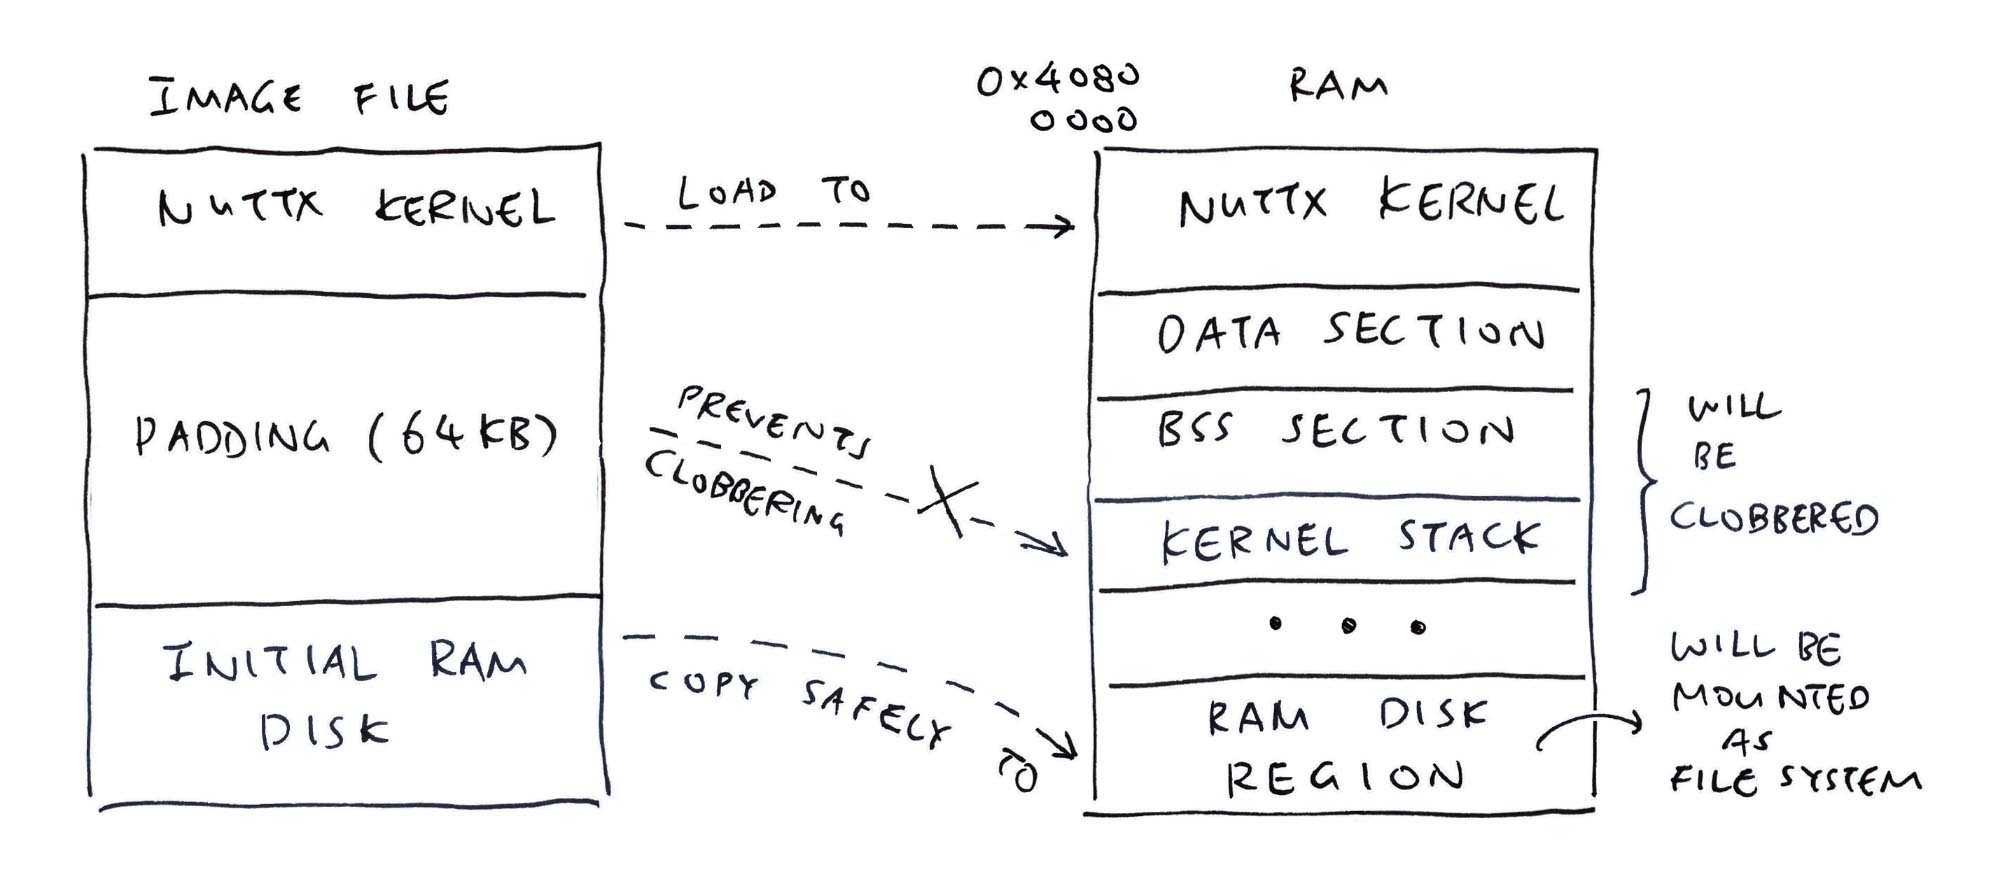 IMAGE FILE
NUTTX KERNEL
PADDING (64KB)
INITIAL RAM
DISK
LOAD TO
PREVENTS
CLOBBERING
COPY SAFELY TO
0x4080
0000
RAM
NUTTX KERNEL
DATA SECTION
BSS SECTION
KERNEL STACK
• • •
RAM DISK
REGION
WILL
BE
CLOBBERED
WILL BE
MOUNTED
AS
FILE SYSTEM